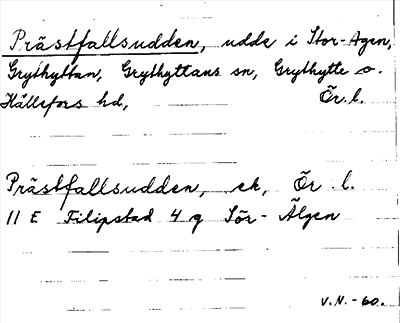 Prästfallsudden, udde i Stor-Agen,
Grythyttan, Grythyttans sn, Grythytte o.
Hällefors hd, Ör. l.
Prästfallsudden, ek, Ör. l.
11 E Filipstad 4 g Sör-Älgen
V.N.-60.